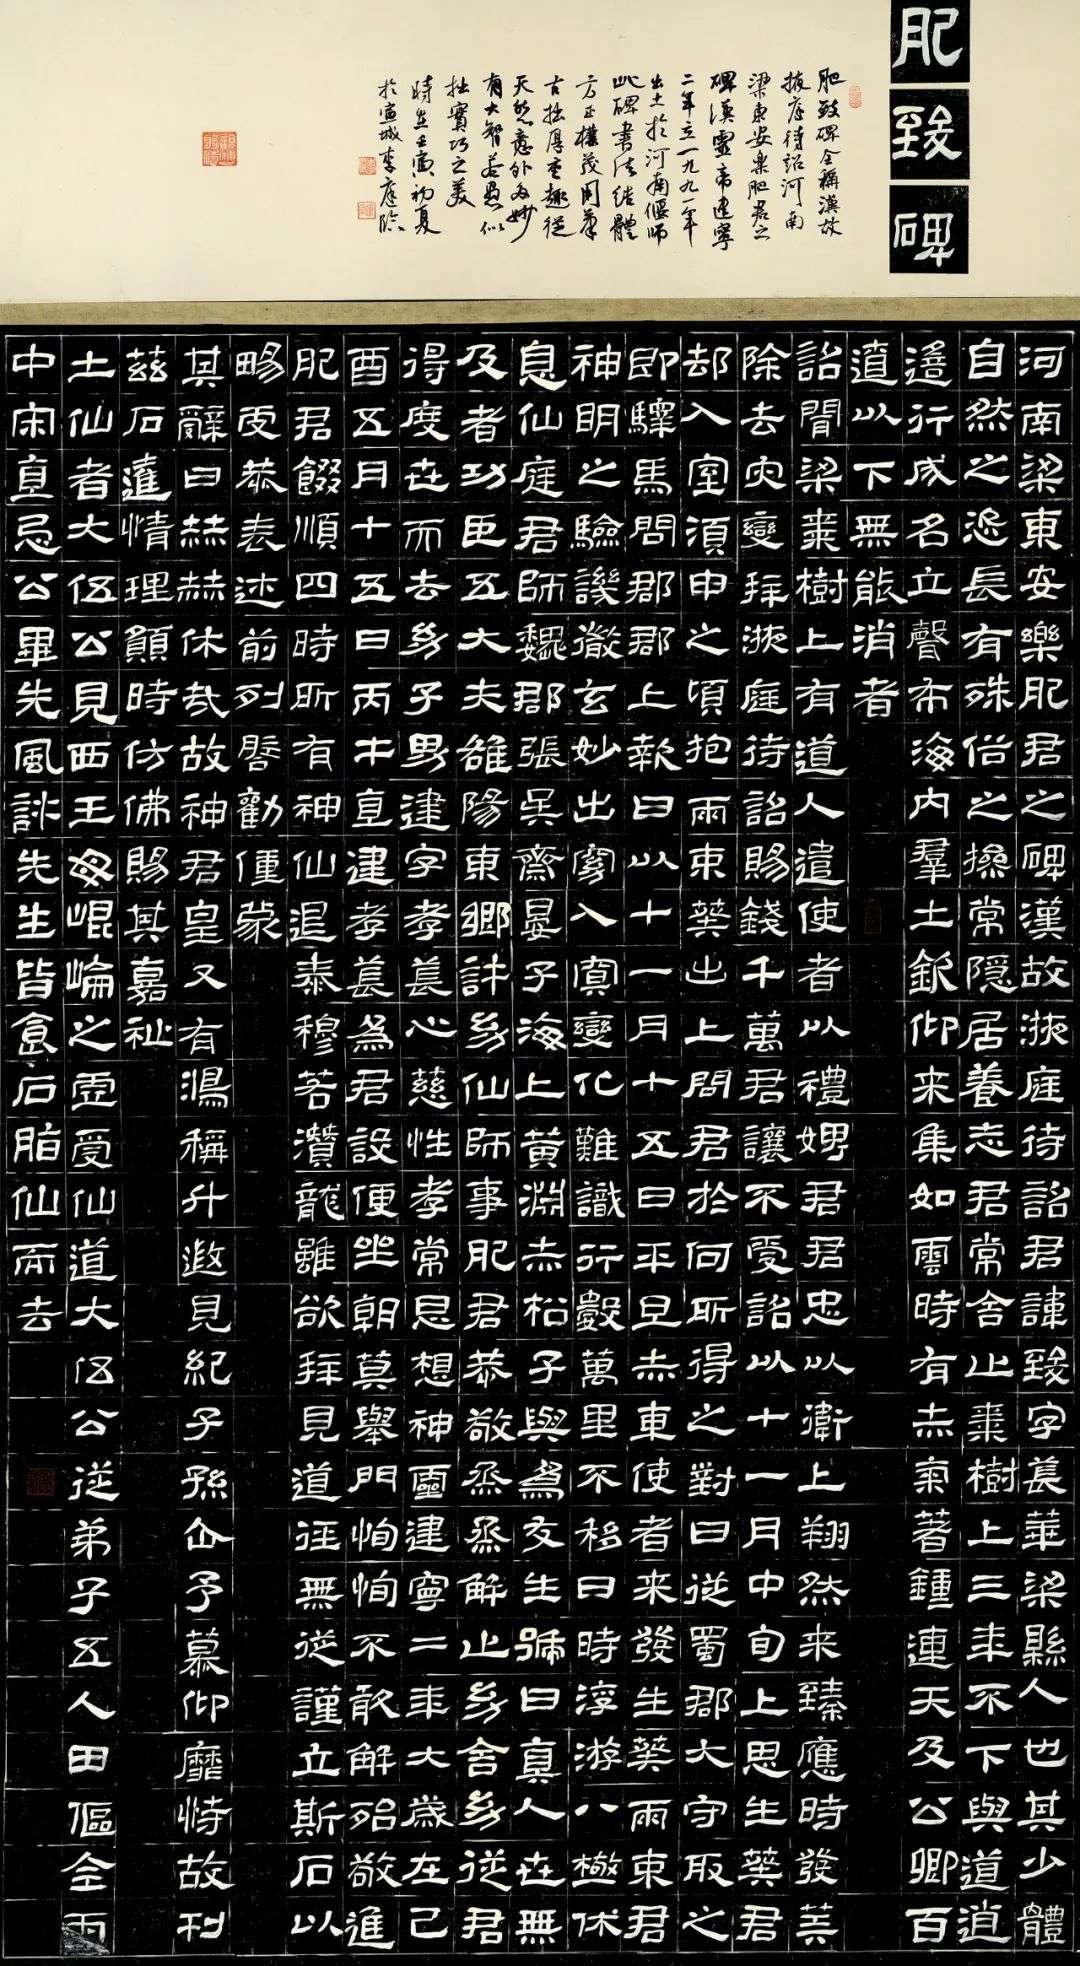 肥致碑
肥致碑全稱漢故
掖庭待詔河南
梁東安樂肥君之
碑漢靈帝建寧
二年立一九九一年
出土於河南偃師
此碑書法結體
方正樸茂用筆
古拙厚重趣從
天然意外為妙
有大智若愚似
拙實巧之美
時在壬寅初夏
於宣城李庭臨
河南梁東安樂肥君之碑漢故掖庭待詔君諱致字萇華梁縣人也其少體
自然之恣長有殊俗之操常隱居養志君常舍止棗樹上三年不下與道逍
遙行成名立聲布海內群士欽仰來集如雲時有赤氣著鍾連天及公卿百
遼以下無能消者
詔聞梁棗樹上有道人遣使者以禮娉君君忠以衛上翔然來臻應時發筭
除去灾變拜掖庭待詔賜錢千萬君讓不受詔以十一月中旬上思生葵君
却入室須臾之頃抱兩束葵出上問君於何所得之對曰從蜀郡大守取之
即驛馬問郡郡上報曰以十一月十五日平旦赤車使者來發生葵兩束君
神明之驗譏徹玄妙出窈入冥變化難識行數萬里不移日時浮游八極休
息仙庭君師魏郡張吳齋晏子海上黃淵赤松子與為友生號曰真人世無
及者功臣五大夫雒陽東鄉許幼仙師事肥君恭敬烝烝解止幼舍幼從君
得度世而去幼子男建字孝萇心慈性孝常思想神靈建寧二年大歲在己
酉五月十五日丙午直建孝萇為君設便坐朝莫舉門恂恂不敢解殆敬進
肥君餟順四時所有神仙退泰穆若潛龍雖欲拜見道徑無從謹立斯石以
暢虔恭表述前列啓勸僮蒙
其辭曰赫赫休哉故神君皇又有鴻稱升遐見紀子孫企予慕仰靡恃故刊
茲石達情理願時仿佛賜其嘉祉
土仙者大伍公見西王母崐崘之虛受仙道大伍公從弟子五人田傴全雨
中宋直忌公畢先風許先生皆食石脂仙而去